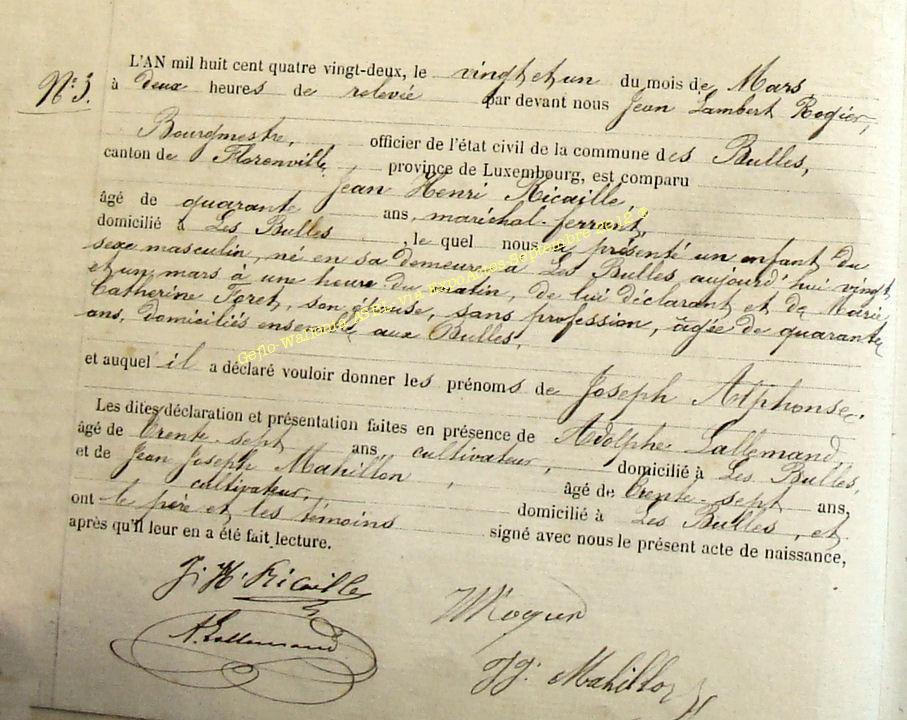 L'AN mil huit cent quatre vingt-deux, le vingt et un du mois de Mars,
N° 3.
à deux heures de relevée par devant nous Jean Lambert Rogier,
Bourgmestre, officier de l'état civil de la commune des Bulles,
canton de Florenville, province de Luxembourg, est comparu
Jean Henri Ricaille
âgé de quarante ans, maréchal-ferrant,
domicilié à Les Bulles, le quel nous a présenté un enfant du
sexe masculin, né en sa demeure à Les Bulles aujourd'hui vingt
et un mars à une heure du matin, de lui déclarant et de Marie
Catherine Toret, son épouse, sans profession, âgée de quarante
ans, domiciliés ensemble aux Bulles,
et auquel il a déclaré vouloir donner les prénoms de Joseph Alphonse.
Les dites déclaration et présentation faites en présence de Adolphe Lallemand
âgé de trente-sept ans, cultivateur, domicilié à Les Bulles,
et de Jean Joseph Mahillon, âgé de trente-sept ans,
cultivateur, domicilié à Les Bulles, et
ont le père et les témoins signé avec nous le présent acte de naissance,
après qu'il leur en a été fait lecture.
J. H. Ricaille
A. Lallemand
JJ. Mahillon
Geno-Wallonie ASBL via ExpoActes Septembre 2012 ©